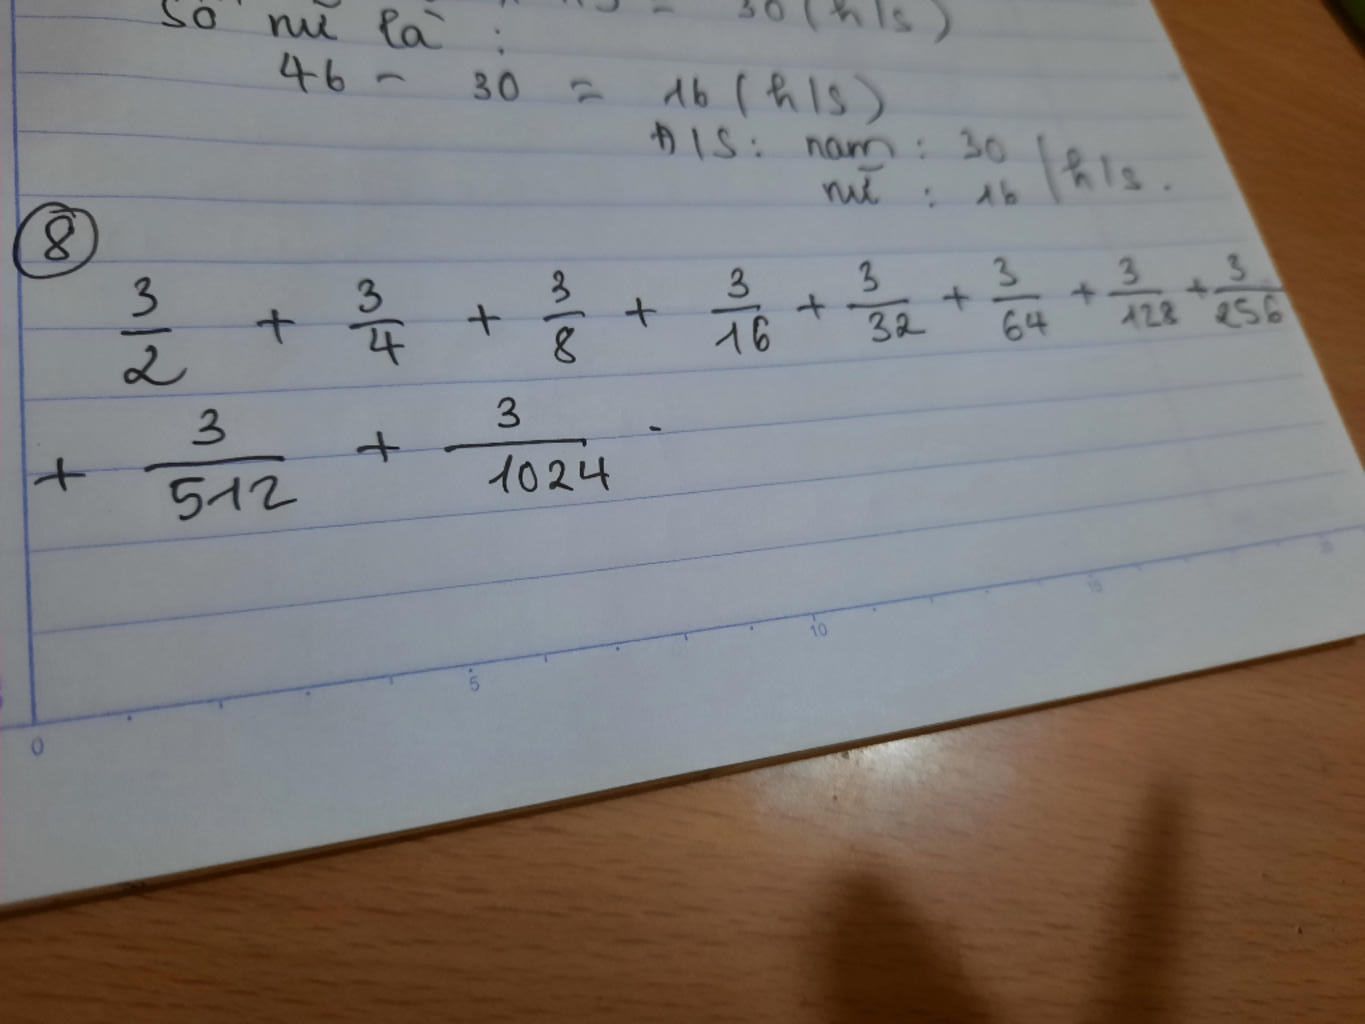 = 30 (h/s)
Số nữ là :
46 - 30 = 16 (h/s)
Đ/S: nam : 30
nữ : 16 / h/s.
8
3/2 + 3/4 + 3/8 + 3/16 + 3/32 + 3/64 + 3/128 + 3/256
+ 3/512 + 3/1024 .
0 5 10 15 20